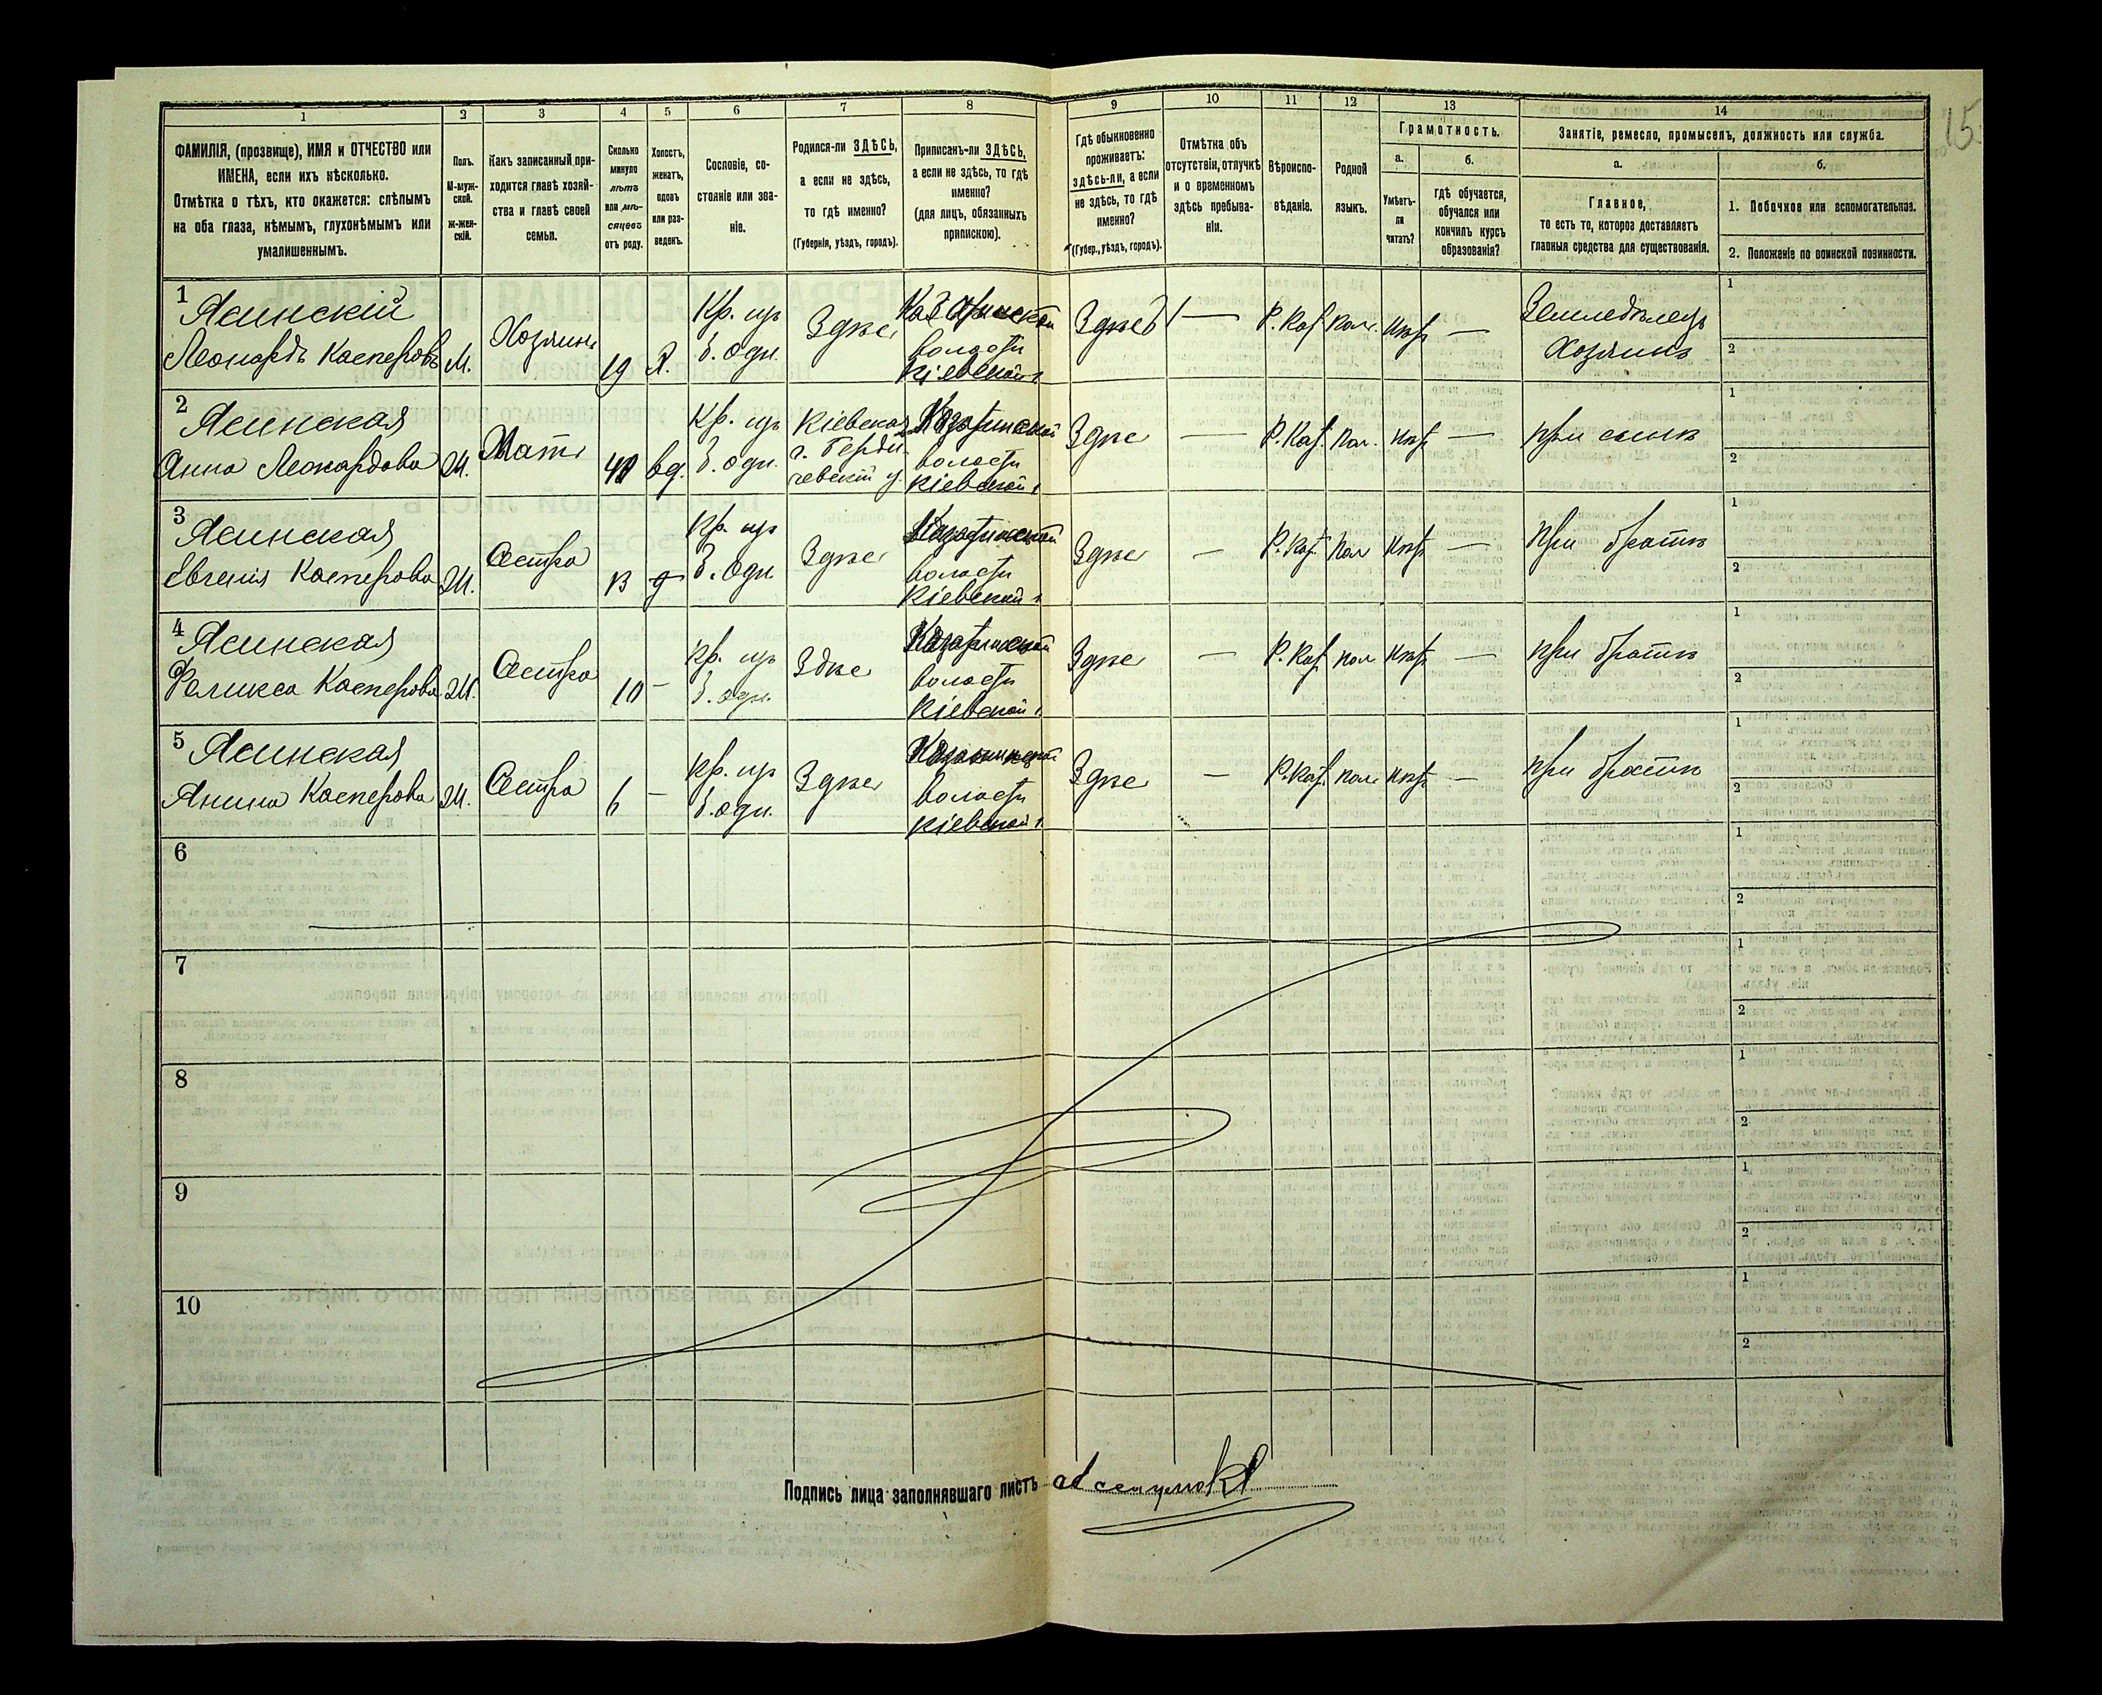 15
1
2
3
4
5
6
7
8
9
10
11
12
13
14
ФАМИЛІЯ, (прозвище), ИМЯ и ОТЧЕСТВО или
ИМЕНА, если ихъ нѣсколько.
Отмѣтка о тѣхъ, кто окажется: слѣпымъ
на оба глаза, нѣмымъ, глухонѣмымъ или
умалишеннымъ.
Полъ.
М-муж-
ской.
ж-жен-
скій.
Какъ записанный при-
ходится главѣ хозяй-
ства и главѣ своей
семьи.
Сколько
минуло
лѣтъ
или мѣ-
сяцевъ
отъ роду.
Холостъ,
женатъ,
вдовъ
или раз-
веденъ.
Сословіе, со-
стояніе или зва-
ніе.
Родился-ли ЗДѢСЬ,
а если не здѣсь,
то гдѣ именно?
(Губернія, уѣздъ, городъ).
Приписанъ-ли ЗДѢСЬ,
а если не здѣсь, то гдѣ
именно?
(для лицъ, обязанныхъ
припискою).
Гдѣ обыкновенно
проживаетъ:
здѣсь-ли, а если
не здѣсь, то гдѣ
именно?
(Губер., уѣздъ, городъ).
Отмѣтка объ
отсутствіи, отлучкѣ
и о временномъ
здѣсь пребыва-
ніи.
Вѣроиспо-
вѣданіе.
Родной
языкъ.
Грамотность.
а.
Умѣетъ-
ли
читать?
б.
гдѣ обучается,
обучался или
кончилъ курсъ
образованія?
Занятіе, ремесло, промыселъ, должность или служба.
а.
Главное,
то есть то, которое доставляетъ
главныя средства для существованія.
б.
1. Побочное или вспомогательное.
2. Положеніе по воинской повинности.
1
Ясинскій
Леонардъ Касперовъ
М.
Хозяинъ
19
Х.
Кр. изъ
б. одн.
Здѣсь
волости
Кіевской г.
Здѣсь
—
Р. Кат.
Пол.
Нѣтъ
—
Земледѣлецъ
Хозяинъ
1
2
2
Ясинская
Анна Леонардова
Ж.
Мать
вд.
Кр. изъ
б. одн.
Кіевская
г. Берди-
чевскій у.
Казатинской
волости
Кіевской г.
Здѣсь
—
Р. Кат.
Пол.
Нѣтъ
—
при сынѣ
1
2
3
Ясинская
Евгенія Касперова
Ж.
Сестра
13
Кр. изъ
б. одн.
Здѣсь
Казатинской
волости
Кіевской г.
Здѣсь
—
Р. Кат.
Пол
Нѣтъ
—
При братѣ
1
2
4
Ясинская
Феликса Касперова
Ж.
Сестра
10
—
Кр. изъ
б. одн.
Здѣсь
Казатинской
волости
Кіевской г.
Здѣсь
—
Р. Кат
пол
Нѣтъ
—
при братѣ
1
2
5
Ясинская
Янина Касперова
Ж.
Сестра
6
—
Кр. изъ
б. одн.
Здѣсь
Казатинской
волости
Кіевской г.
Здѣсь
—
Р. Кат.
пол.
Нѣтъ
—
при братѣ
1
2
6
1
2
7
1
2
8
1
2
9
1
2
10
1
2
Подпись лица заполнявшаго листъ